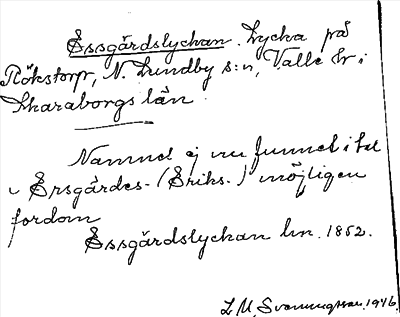 Essgärdslyckan. Lycka på
Rökstorp, N. Lundby s:n, Valle hr i
Skaraborgs län.
Namnet ej nu funnet i tal
Ersgärdes- (Eriks-) möjligen
fordom
Essgärdslyckan lm. 1852.
L. M. Svenungsson, 1946.